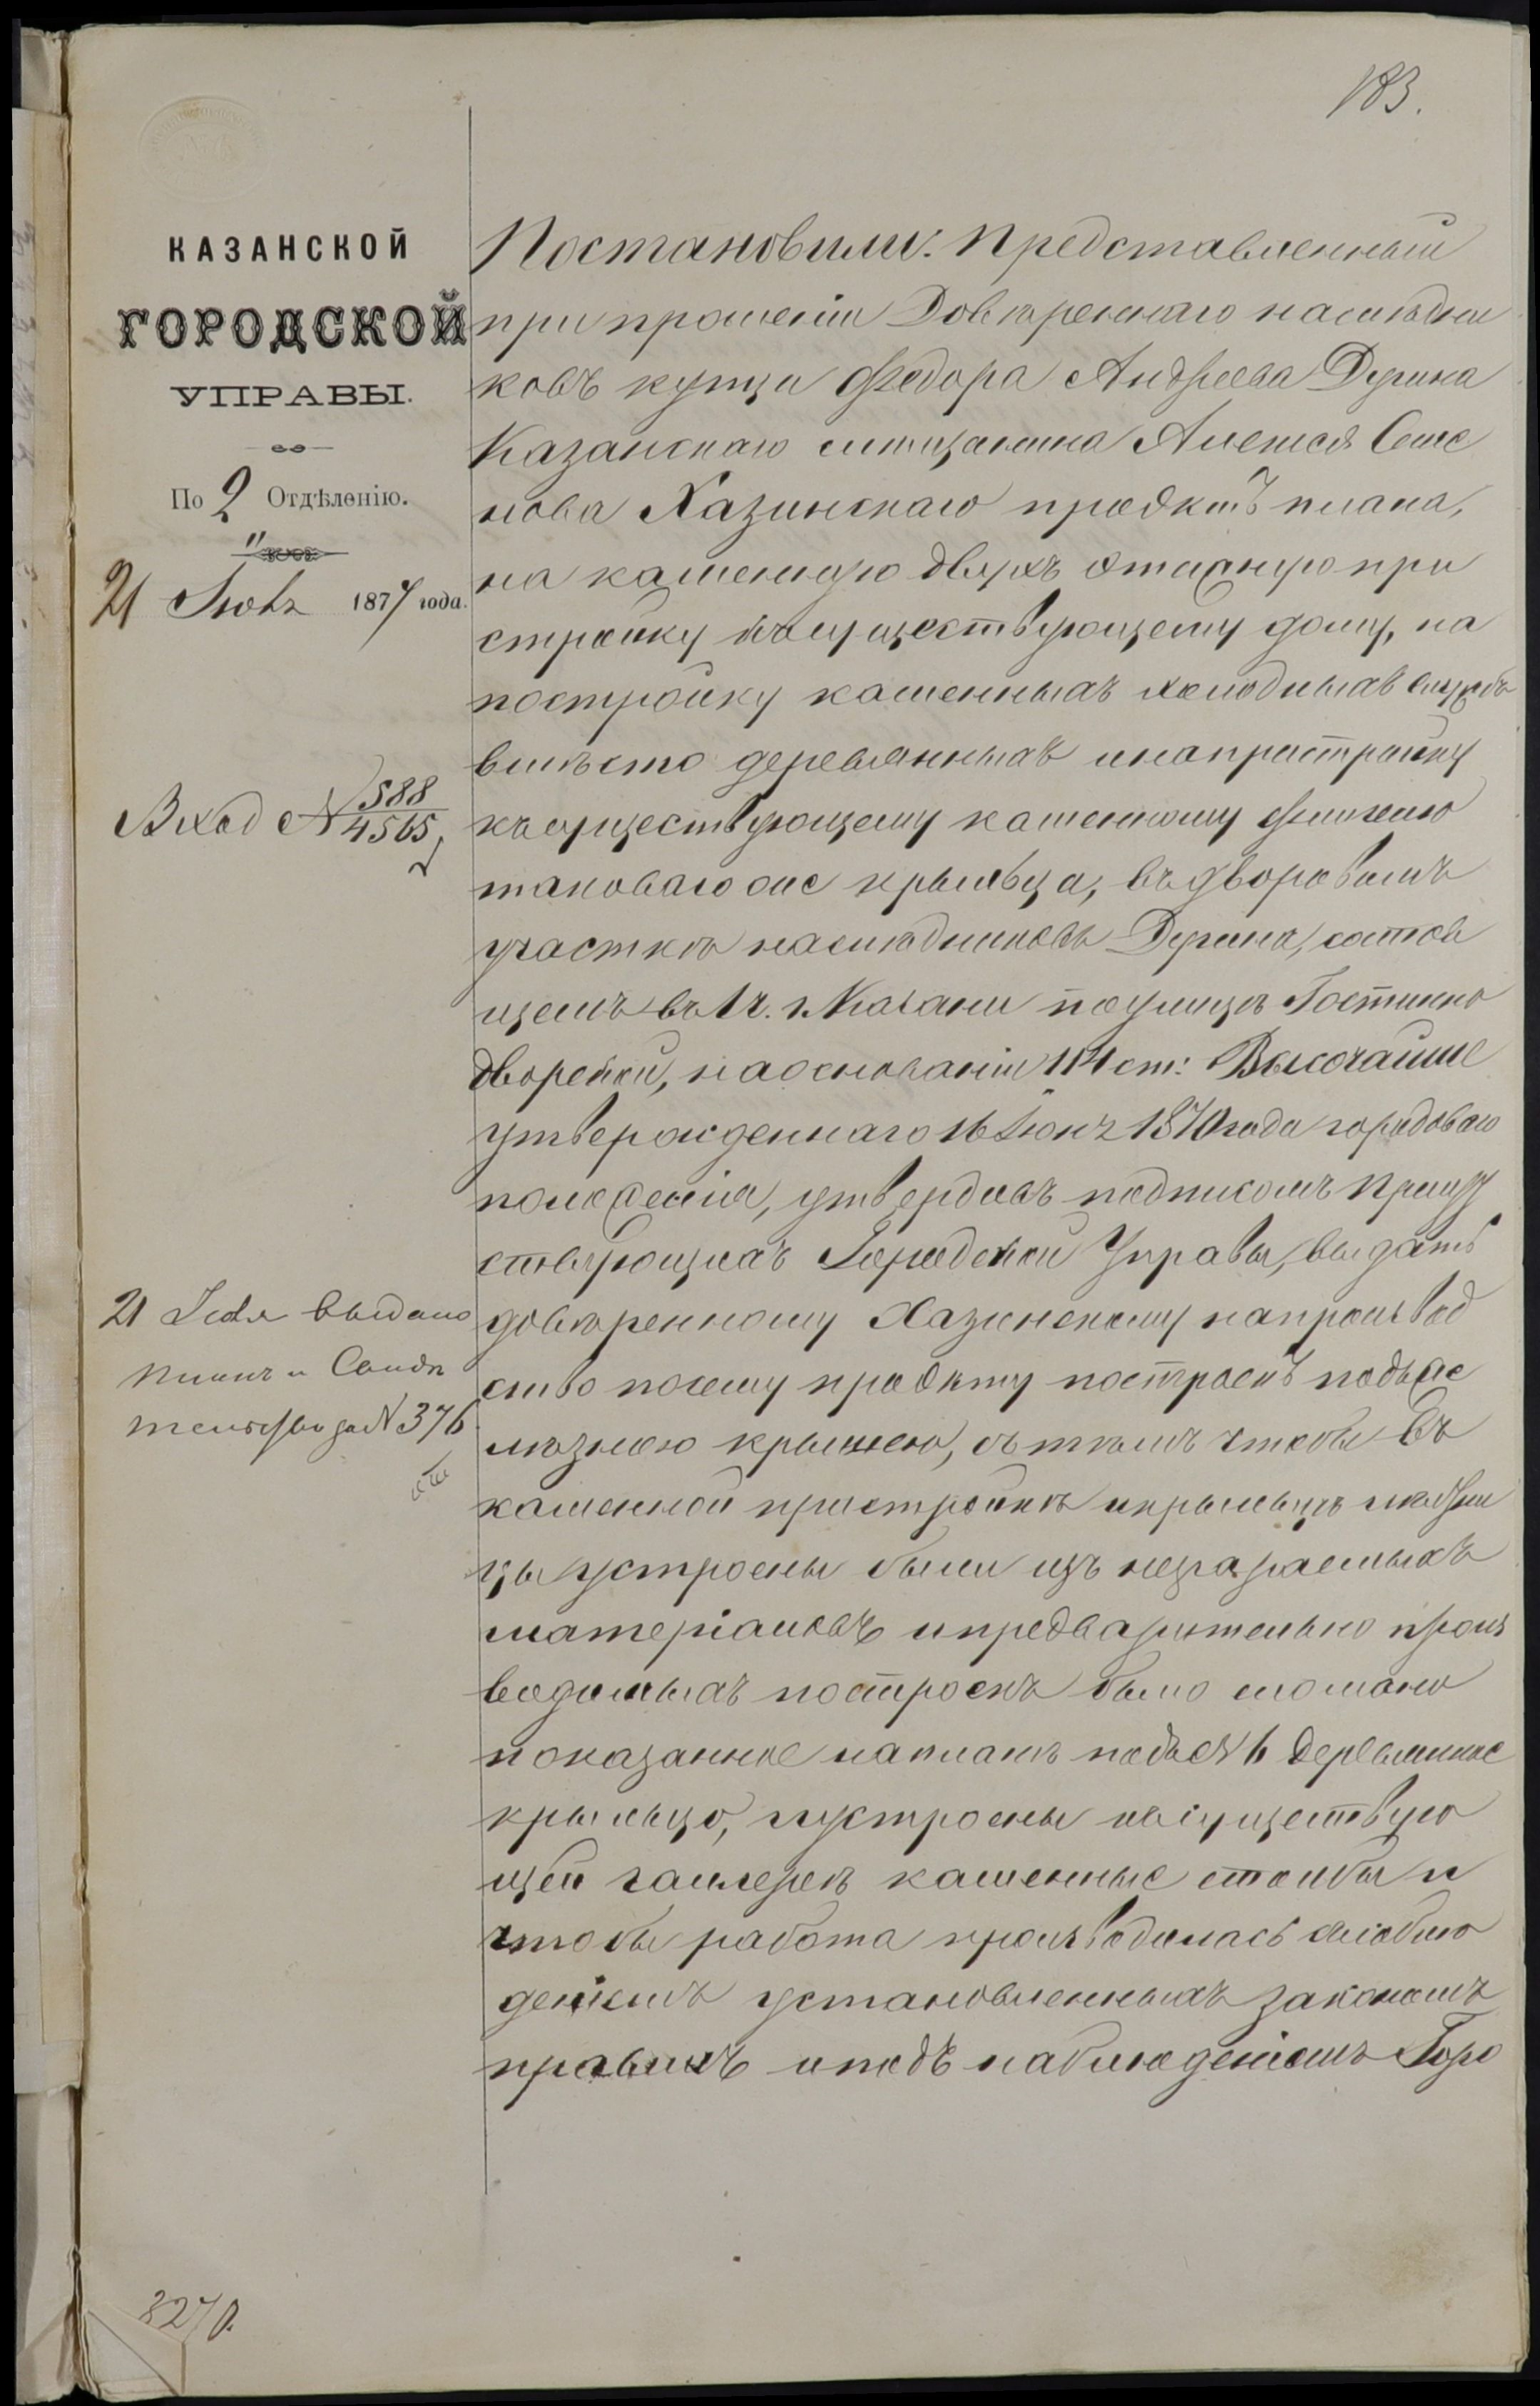 183.
КАЗАНСКОЙ
ГОРОДСКОЙ
УПРАВЫ.
По 2 Отдѣленію.
21 Іюля 1877 года.
Вход № 588/4565
21 Іюля выдано
планъ и Свидѣ
тельство за № 376
Постановили: Представленный
при прошеніи Довѣреннаго наслѣдни
ковъ купца Федора Андреева Дугина
Казанскаго мѣщанина Алексѣя Семе
нова Хазинскаго проэктъ плана,
на каменную двухъ этажную при
стройку къ существующему дому, на
постройку каменныхъ холодныхъ службъ
вмѣсто деревянныхъ и на пристройку
къ существующему каменному флигелю
таковаго же крыльца, въ дворовомъ
участкѣ наслѣдниковъ Дугина, состоя
щемъ въ 1 ч. г. Казани по улицѣ Гостинно
дворской, на основаніи 114 ст: Высочайше
утвержденнаго 16 Іюня 1870 года городоваго
положенія, утвердивъ подписомъ Присут
ствующихъ Городской Управы, выдать
довѣренному Хазинскому на производ
ство по сему проэкту построекъ подъ же
лѣзною крышею, съ тѣмъ чтобы въ
каменной пристройкѣ и крыльцѣ лѣстни
цы устроены были изъ несгараемыхъ
матеріаловъ и предварительно произ
водимыхъ построекъ было сломано
показанное на планѣ подъ № 6 деревянное
крыльцо, и устроены въ существую
щей галлереѣ каменные столбы и
чтобы работа производилась съ соблю
деніемъ установленныхъ закономъ
правилъ и подъ наблюденіемъ Горо
3270.